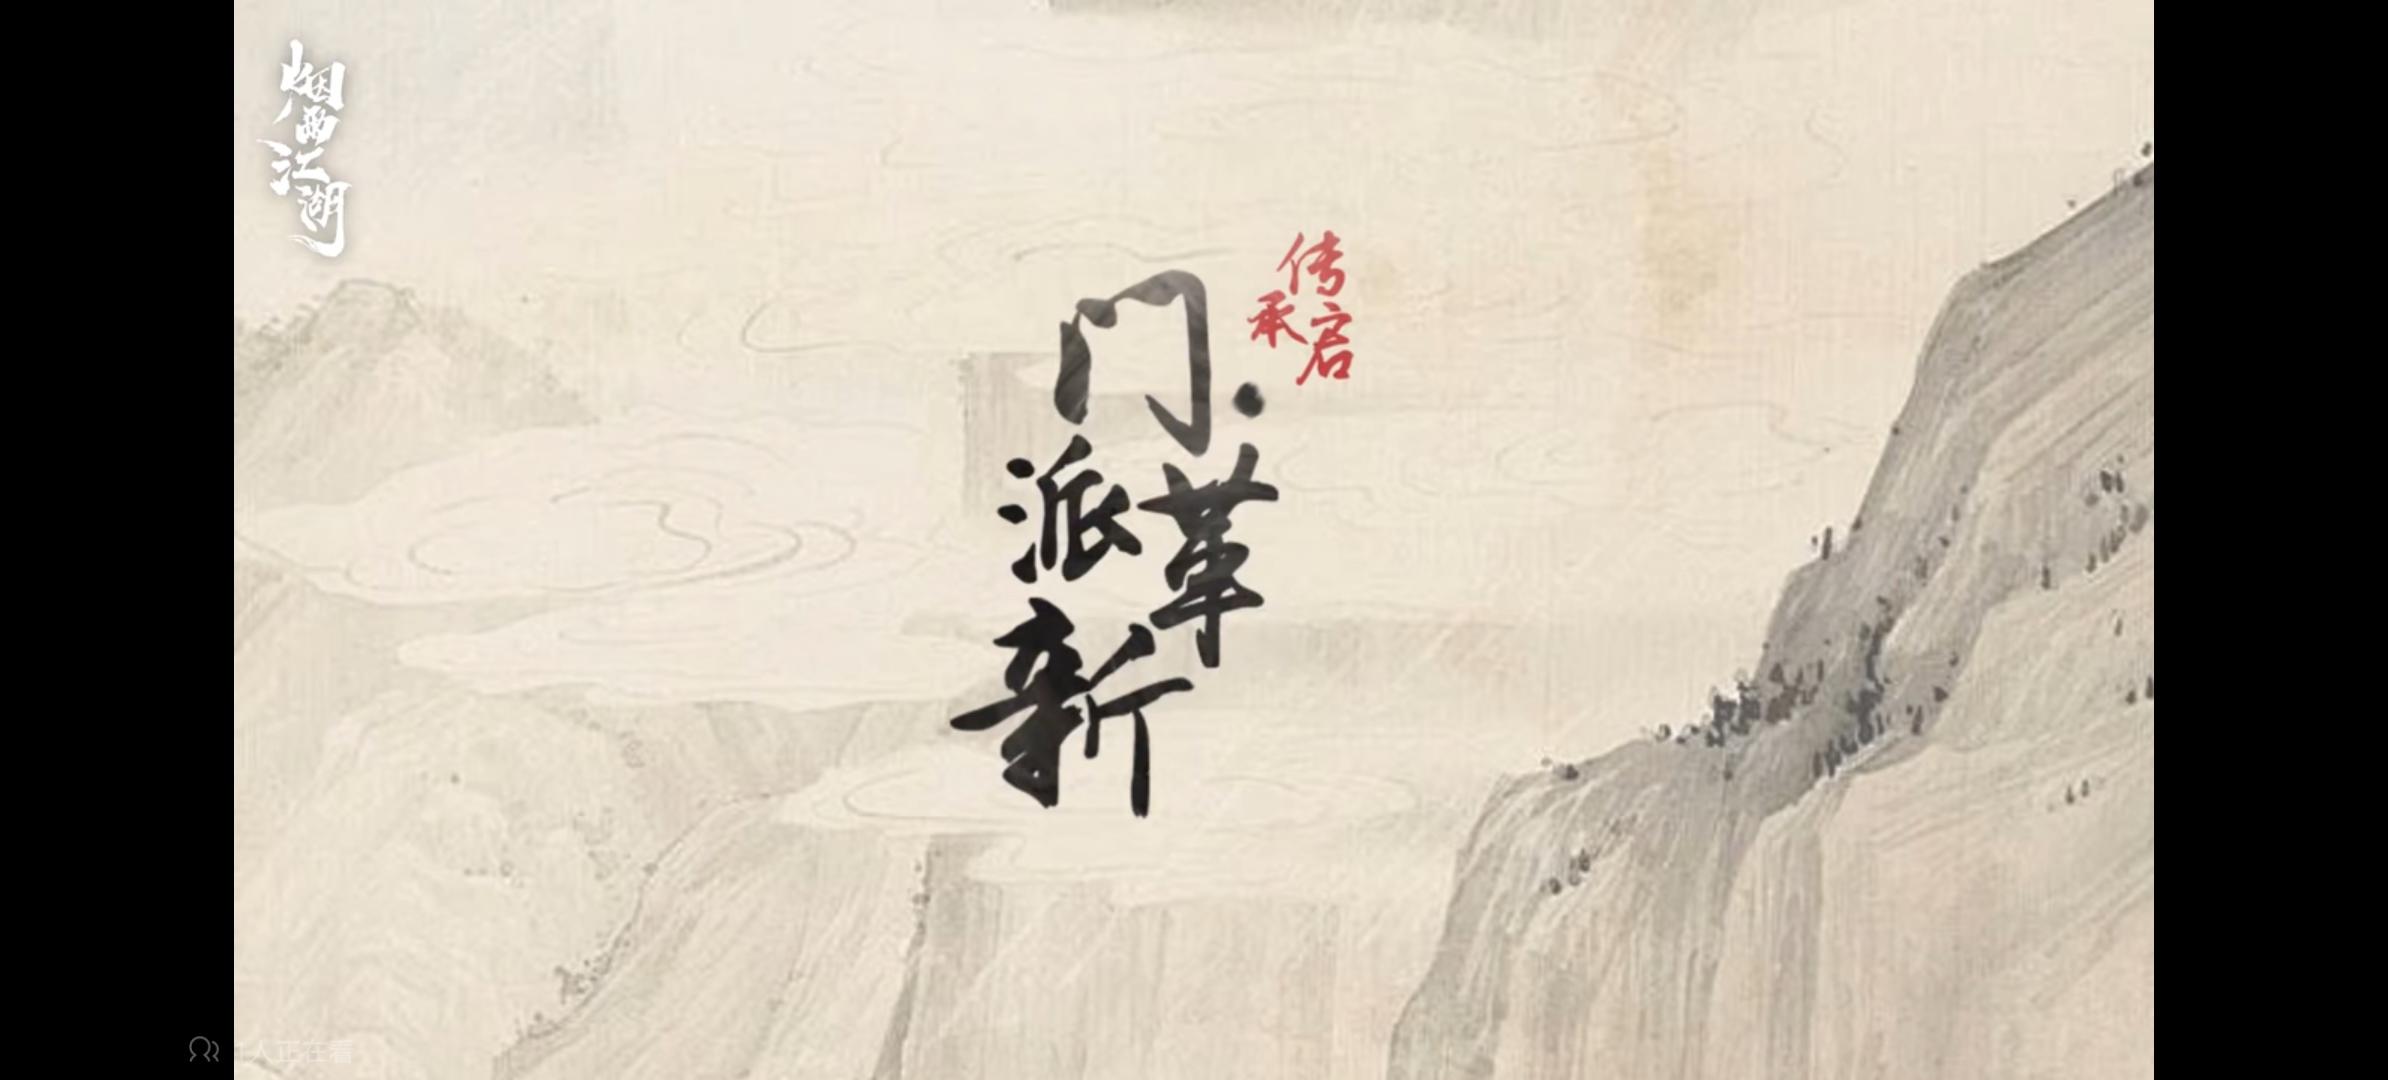 烟雨江湖
传承启
门派革新
1人正在看